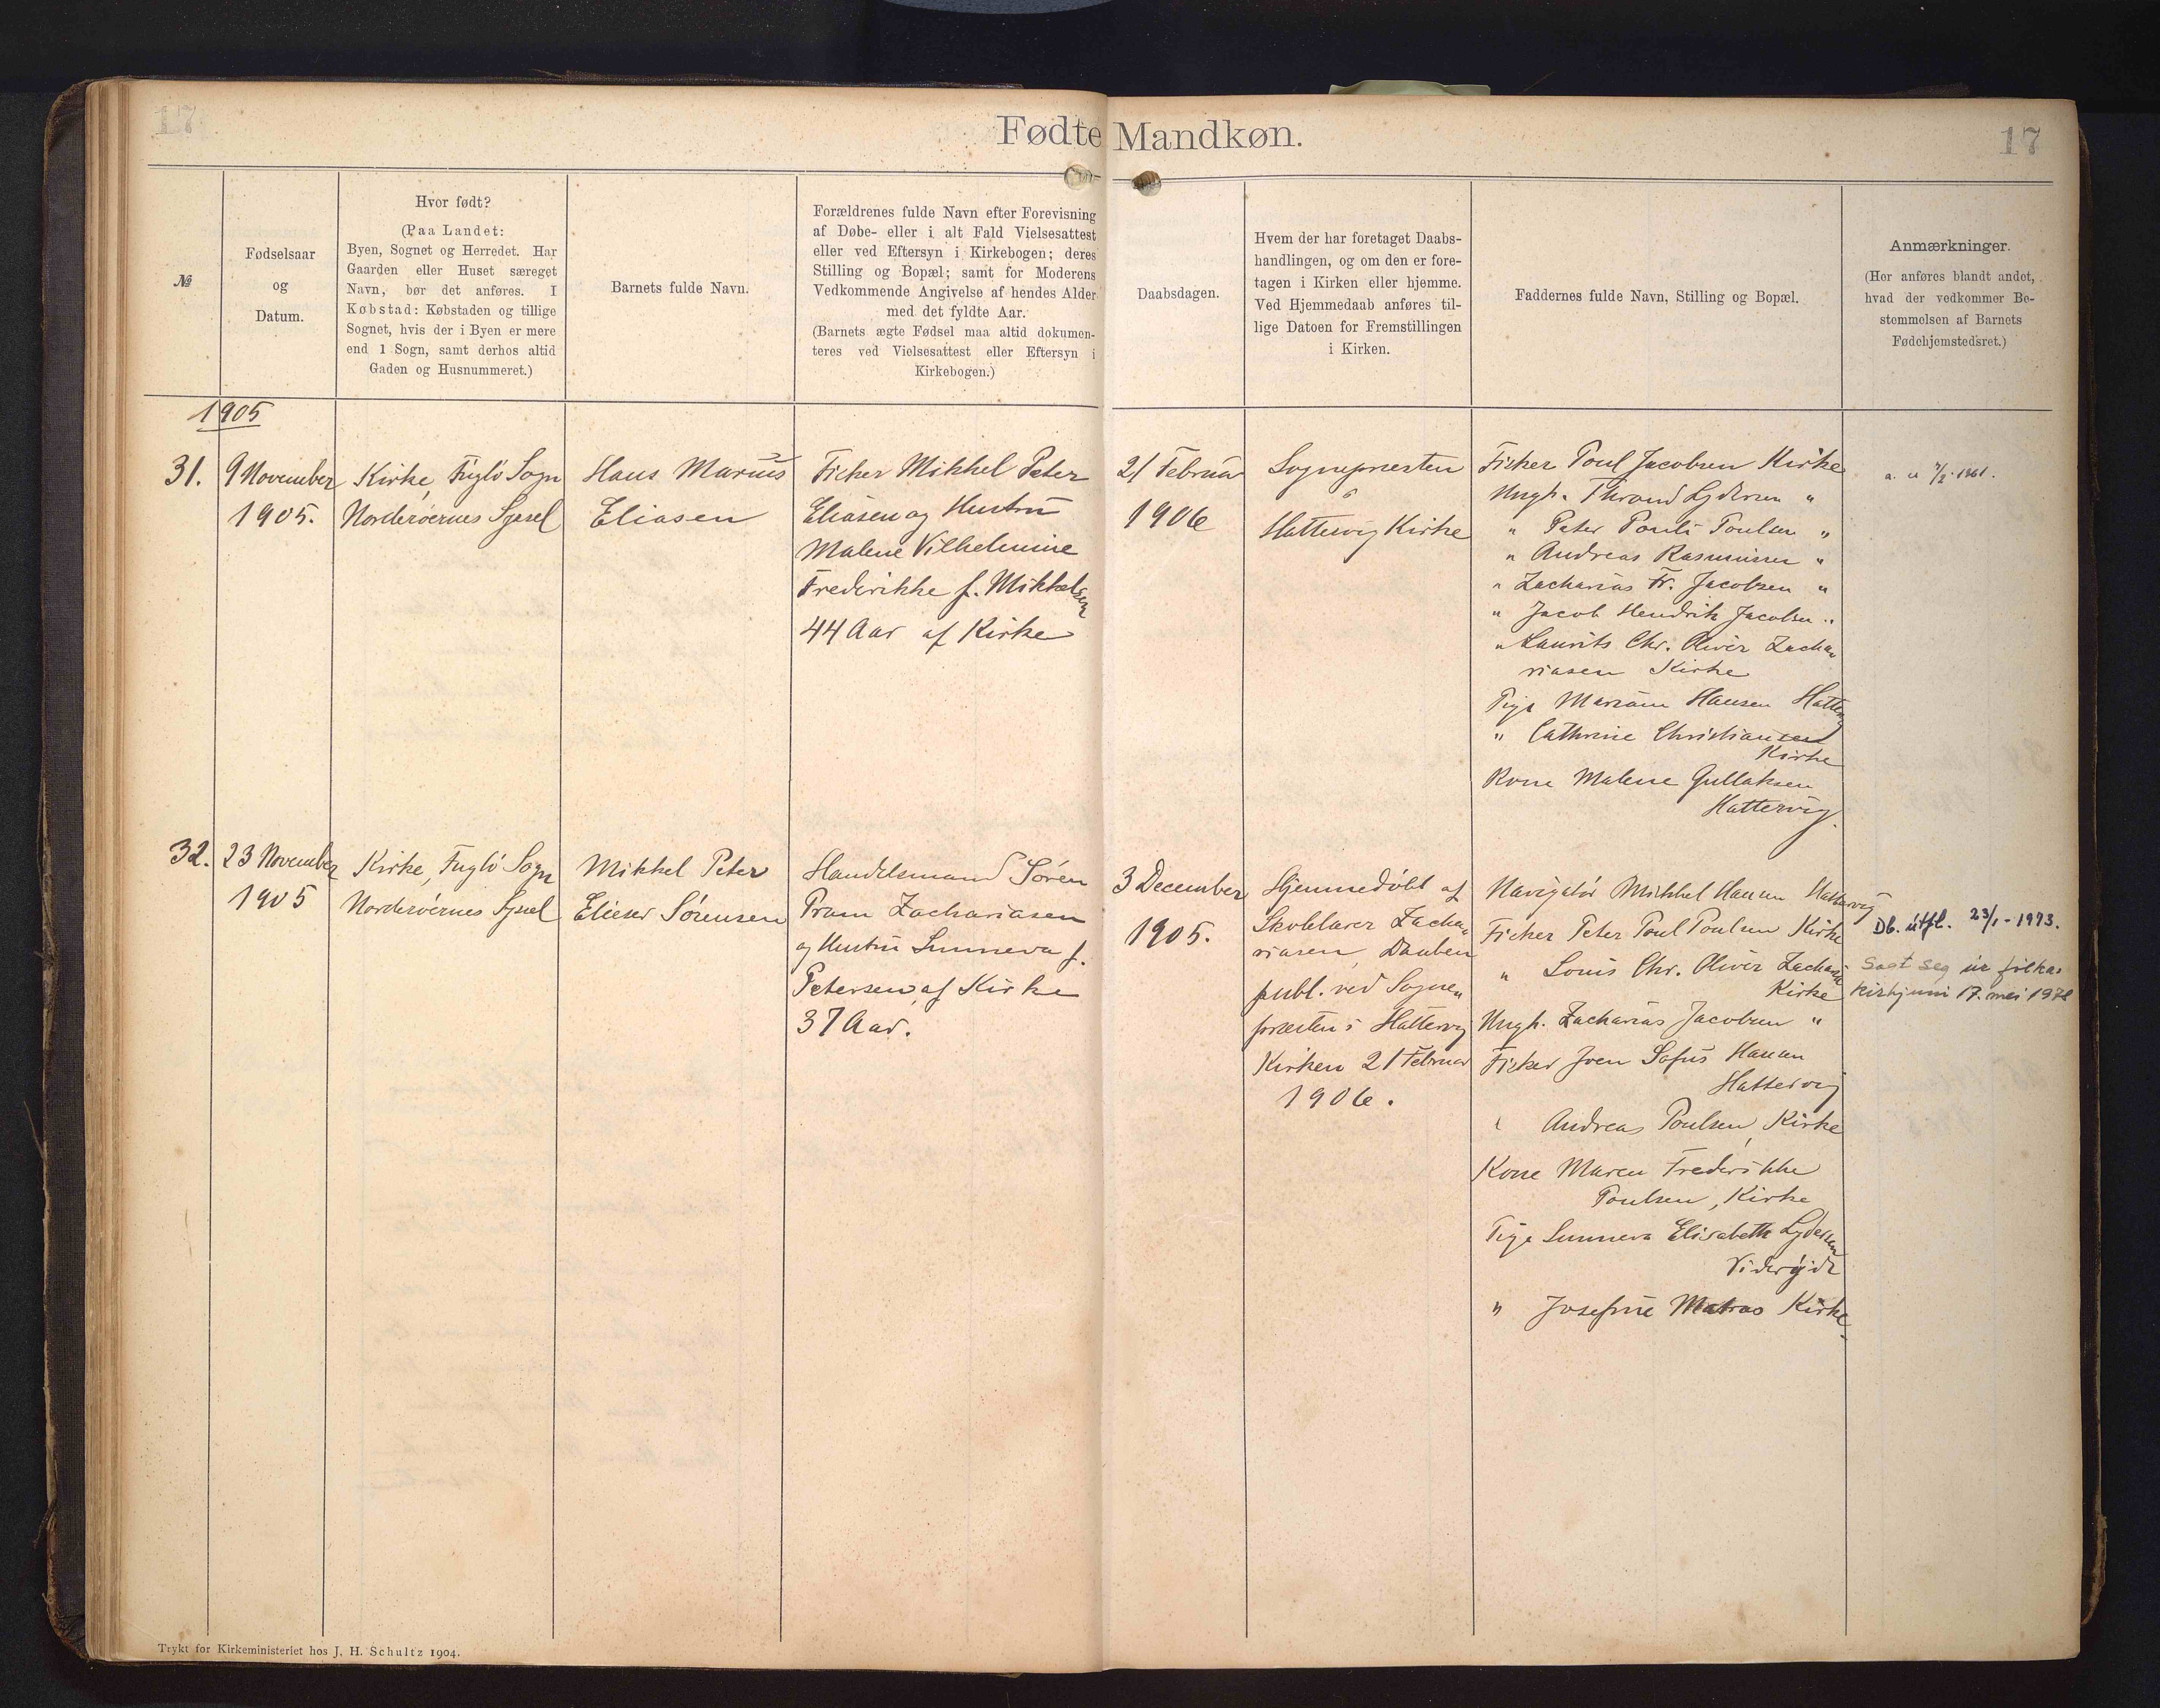 17
Fødte Mandkøn.
17
№
Fødselsaar
og
Datum.
Hvor født?
(Paa Landet:
Byen, Sognet og Herredet. Har
Gaarden eller Huset særeget
Navn, bør det anføres. I
Købstad: Købstaden og tillige
Sognet, hvis der i Byen er mere
end 1 Sogn, samt derhos altid
Gaden og Husnummeret.)
Barnets fulde Navn.
Forældrenes fulde Navn efter Forevisning
af Døbe- eller i alt Fald Vielsesattest
eller ved Eftersyn i Kirkebogen; deres
Stilling og Bopæl; samt for Moderens
Vedkommende Angivelse af hendes Alder
med det fyldte Aar.
(Barnets ægte Fødsel maa altid dokumen-
teres ved Vielsesattest eller Eftersyn i
Kirkebogen.)
Daabsdagen.
Hvem der har foretaget Daabs-
handlingen, og om den er fore-
tagen i Kirken eller hjemme.
Ved Hjemmedaab anføres til-
lige Datoen for Fremstillingen
i Kirken.
Faddernes fulde Navn, Stilling og Bopæl.
Anmærkninger.
(Her anføres blandt andet,
hvad der vedkommer Be-
stemmelsen af Barnets
Fødehjemstedsret.)
1905
31.
9 November
1905.
Kirke, Fuglö Sogn
Norderöernes Sysel
Hans Marius
Eliasen
Fisker Mikkel Peter
Eliasen og Hustru
Malene Vilhelmine
Frederikke f. Mikkelsen
44 Aar af Kirke
21 Februar
1906
Sognepresten
i
Hattervig Kirke
Fisker Poul Jacobsen Kirke
Ungk. Thrond Lydersen "
" Peter Pouli Poulsen "
" Andreas Rasmussen "
" Zacharias Fr. Jacobsen "
" Jacob Hendrik Jacobsen "
" Laurits Chr. Oliver Zacha-
riasen Kirke
Pige Mariane Hansen Hattervig
" Cathrine Christiansen
Kirke
Kone Malene Gullaksen
Hattervig.
1961.
32.
23 November
1905
Kirke, Fuglö Sogn
Norderöernes Sysel
Mikkel Peter
Elieser Sörensen
Handelsmand Sören
Pram Zachariasen
og Hustru Sunneva f.
Petersen, af Kirke
37 Aar.
3 December
1905.
Hjemmedöbt af
Skolelærer Zacha-
riasen, Daaben
publ. ved Sogne-
præsten i Hattervig
Kirken 21 Februar
1906.
Navigatör Mikkel Hansen Hattervig
Fisker Peter Poul Poulsen Kirke
" Louis Chr. Oliver Zacharias
Kirke
Ungk. Zacharias Jacobsen "
Fisker Joen Sofus Hansen
Hattervig
" Andreas Poulsen, Kirke
Kone Maren Frederikke
Poulsen, Kirke
Pige Sunneva Elisabeth Lydersen
Videröjde
" Josefine Matras Kirke
Db. útfl. 23/1-1973.
Sagt seg úr fólka-
kirkjuni 17. mei 1978
Trykt for Kirkeministeriet hos J. H. Schultz 1904.